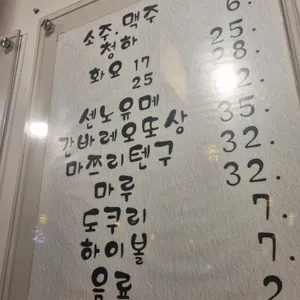 소주.맥주
청하 6.
화요 17 25.
25 28.
센노유메 2.
간바레오또상 35.
마쯔리텐구 32.
마루 32.
도쿠리 7.
하이볼 7.
음료 2